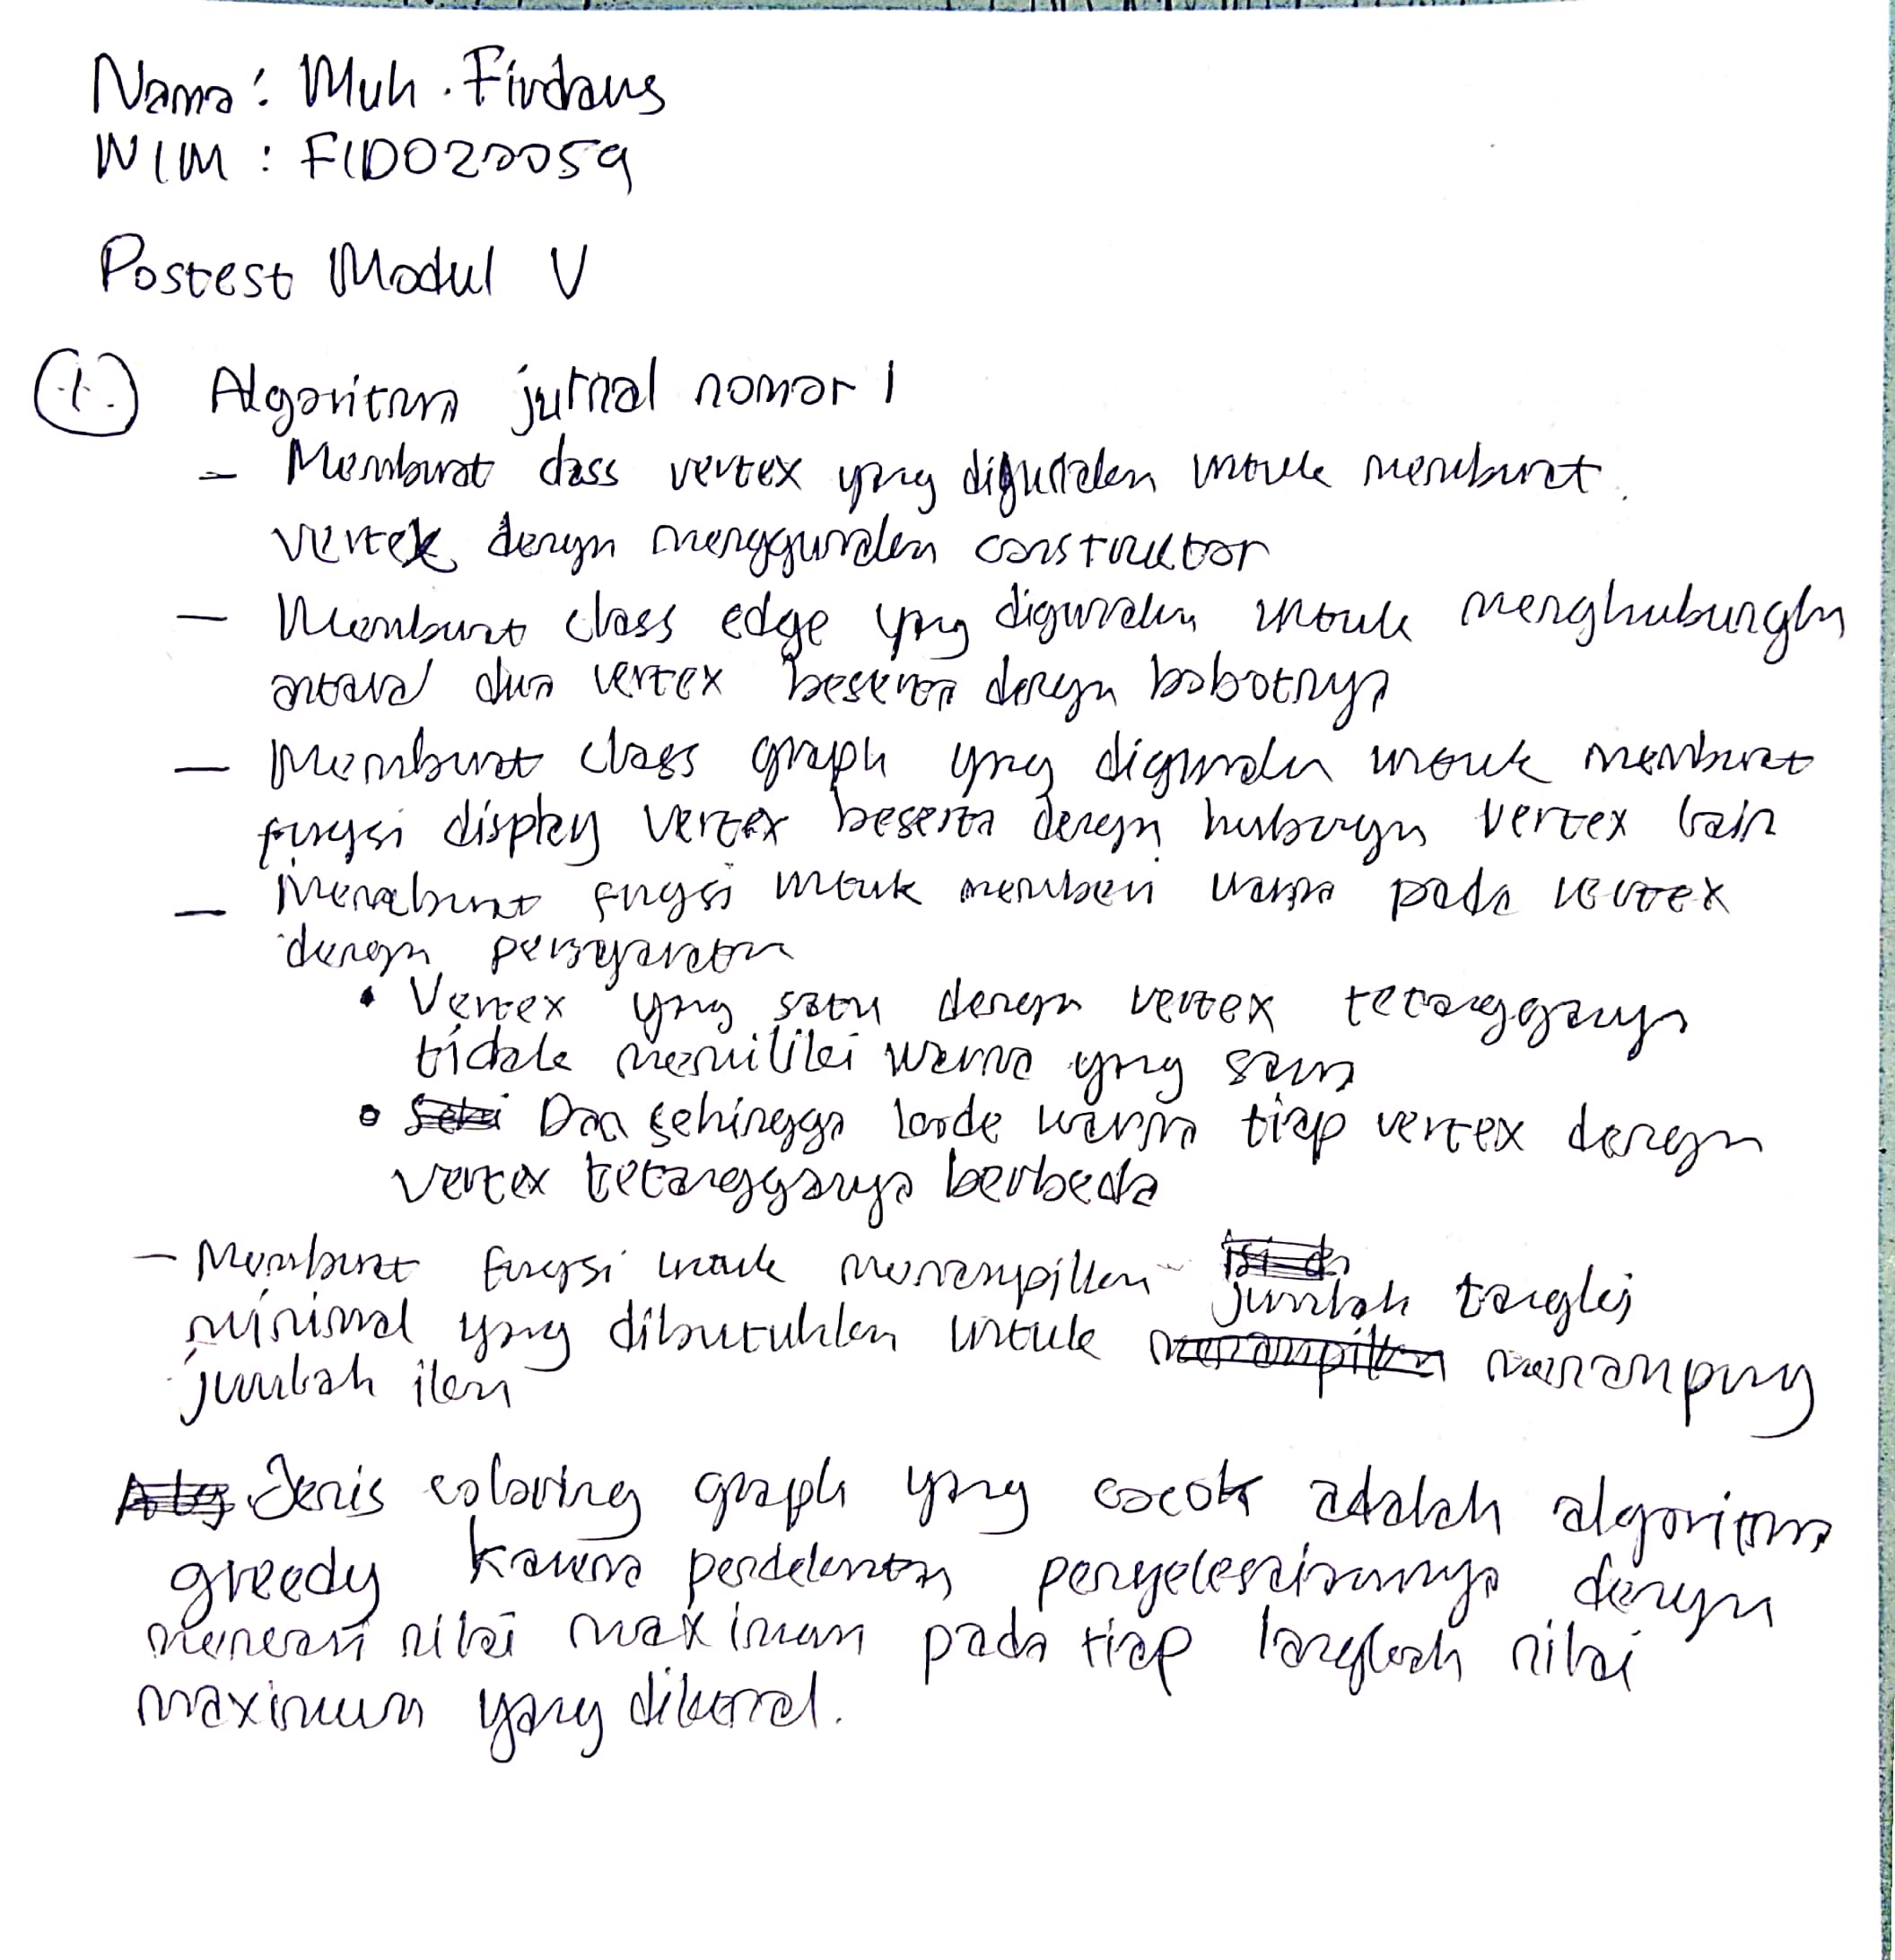 Nama : Muh. Firdaus
NIM : F1D022059
Postest Modul V
1. Algoritma jurnal nomor 1
- Membuat class vertex yang digunakan untuk membuat
vertex dengan menggunakan construktor
- Membuat class edge yang digunakan untuk menghubungkan
antara dua vertex beserta dengan bobotnya
- Membuat class graph yang digunakan untuk membuat
fungsi display vertex beserta dengan hubungan vertex lain
- Membuat fungsi untuk memberi warna pada vertex
dengan persyaratan
• Vertex yang satu dengan vertex tetangganya
tidak memiliki warna yang sama
• Dan sehingga kode warna tiap vertex dengan
vertex tetangganya berbeda
- Membuat fungsi untuk menampilkan jumlah tangki
minimal yang dibutuhkan untuk menampung
jumlah ikan
Jenis coloring graph yang cocok adalah algoritma
greedy karena pendekatan penyelesaiannya dengan
mencari nilai maximum pada tiap langkah nilai
maximum yang dikenal.